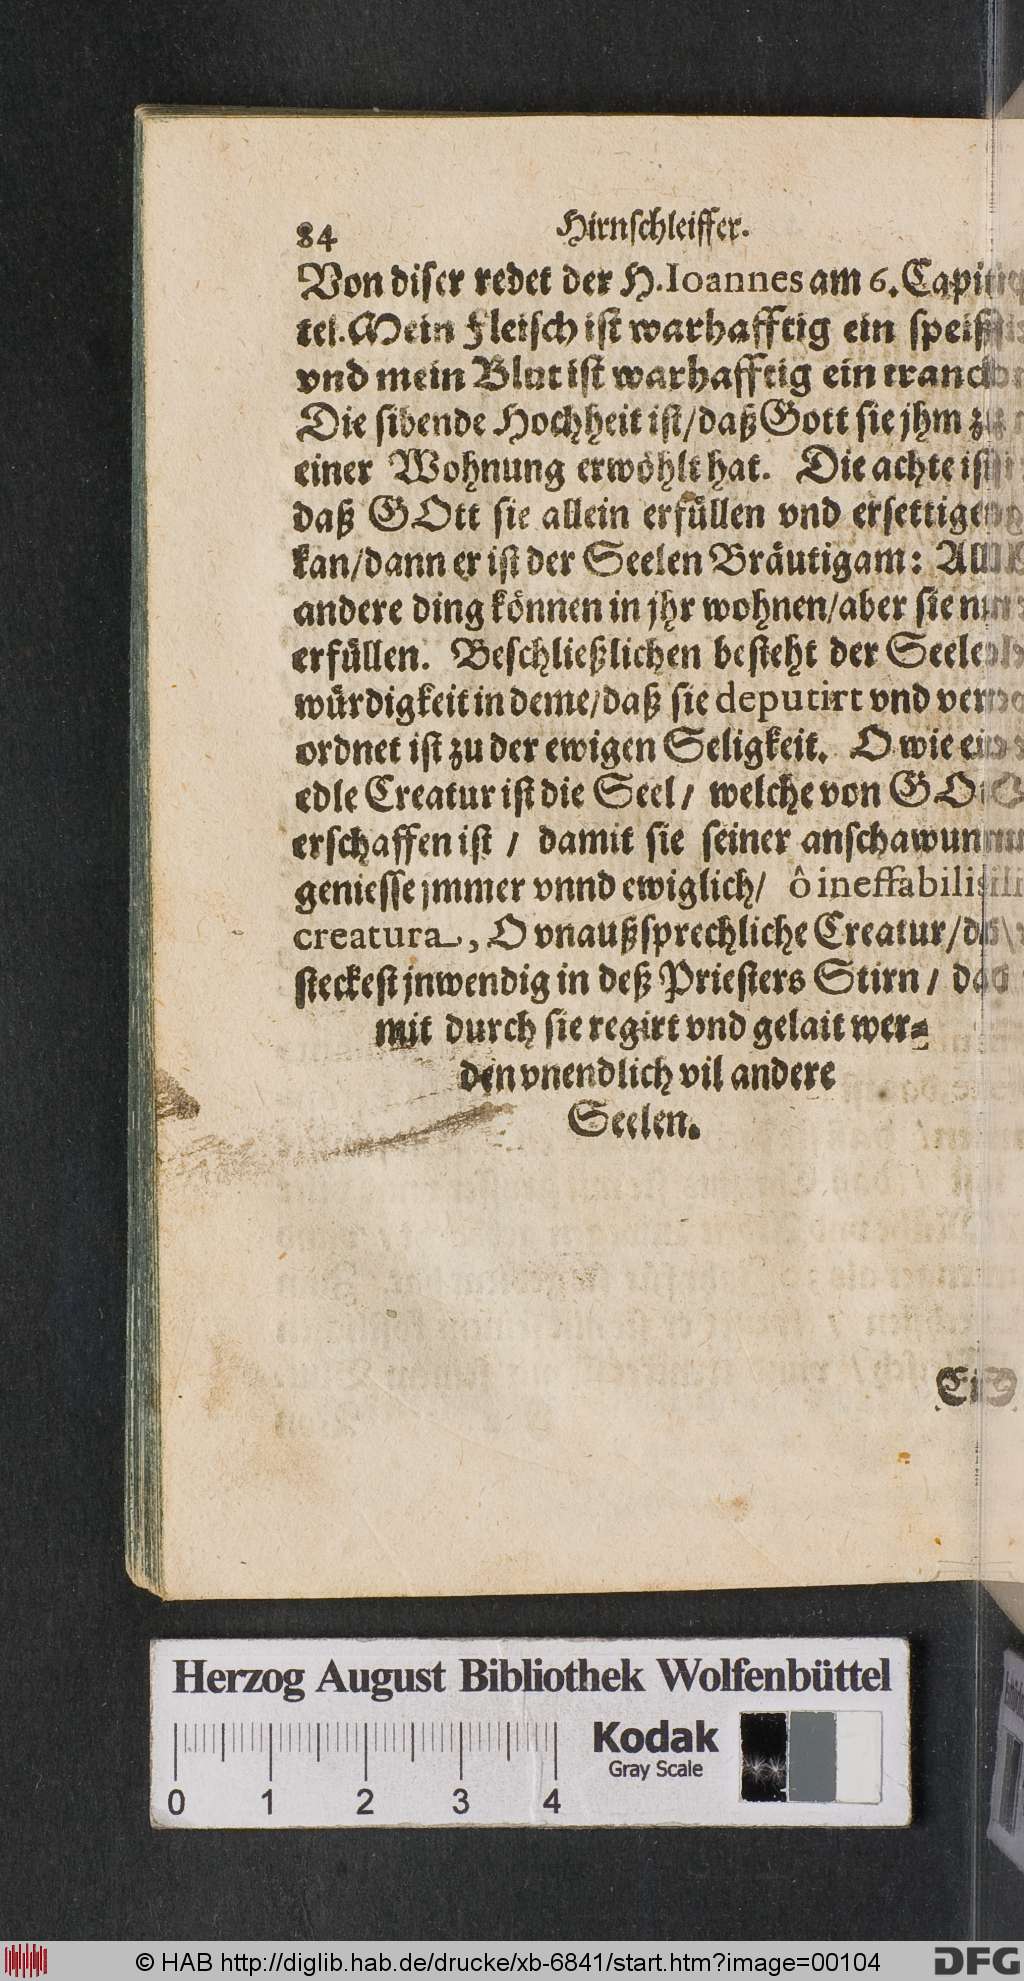 84 Hirnschleiffer.
Von diser redet der H. Ioannes am 6. Capi-
tel. Mein Fleisch ist warhafftig ein speiß
vnd mein Blut ist warhafftig ein tranck
Die sibende Hochheit ist/ daß Gott sie jhm zu
einer Wohnung erwöhlt hat. Die achte ist
daß GOtt sie allein erfüllen vnd ersettigen
kan/ dann er ist der Seelen Bräutigam: All
andere ding können in jhr wohnen/ aber sie nur
erfüllen. Beschließlichen besteht der Seelen
würdigkeit in deme/ daß sie deputirt vnd ver-
ordnet ist zu der ewigen Seligkeit. O wie ein
edle Creatur ist die Seel/ welche von GOtt
erschaffen ist / damit sie seiner anschawung
geniesse jmmer vnnd ewiglich/ ô ineffabilis
creatura, O vnaußsprechliche Creatur/ du
steckest jnwendig in deß Priesters Stirn / da-
mit durch sie regirt vnd gelait wer-
den vnendlich vil andere
Seelen.
Herzog August Bibliothek Wolfenbüttel
Kodak
Gray Scale
0 1 2 3 4
© HAB http://diglib.hab.de/drucke/xb-6841/start.htm?image=00104
DFG